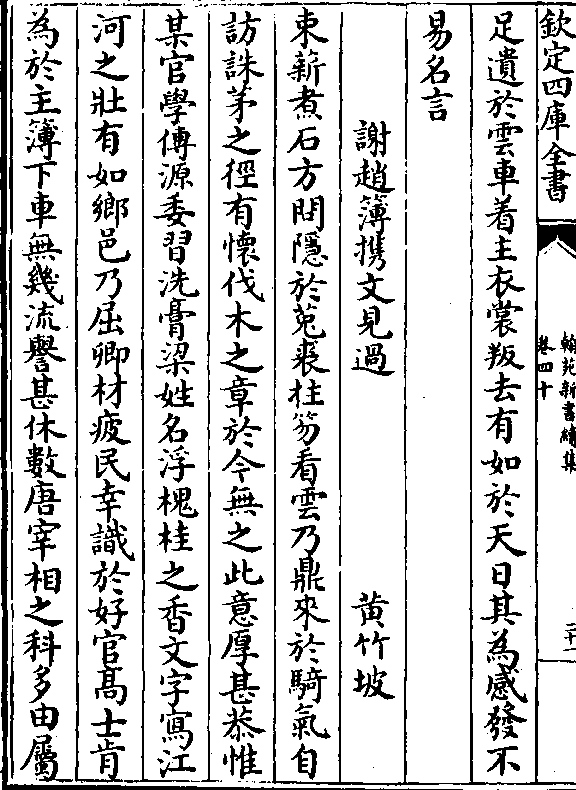 欽定四庫全書
翰苑新書續集
卷四十
二十一
足遺於雲車着主衣裳叛去有如於天日其為感發不
易名言
謝趙簿携文見過
黄竹坡
束薪煮石方問隱於菟裘柱笏看雲乃鼎來於騎氣自
訪誅茅之徑有懷伐木之章於今無之此意厚甚恭惟
某官學傳源委習洗膏粱姓名浮槐桂之香文字寫江
河之壯有如鄉邑乃屈卿材疲民幸識於好官髙士肯
為於主簿下車無幾流譽甚休數唐宰相之科多由屬